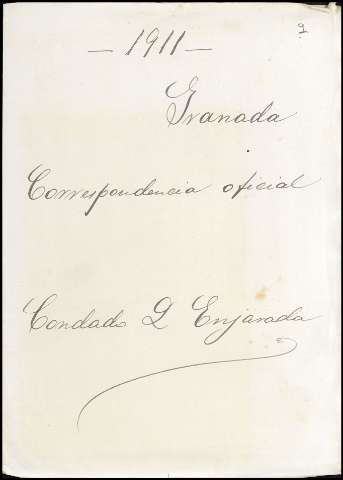 9
— 1911 —
Granada
Correspondencia oficial
Condado L Enjarada